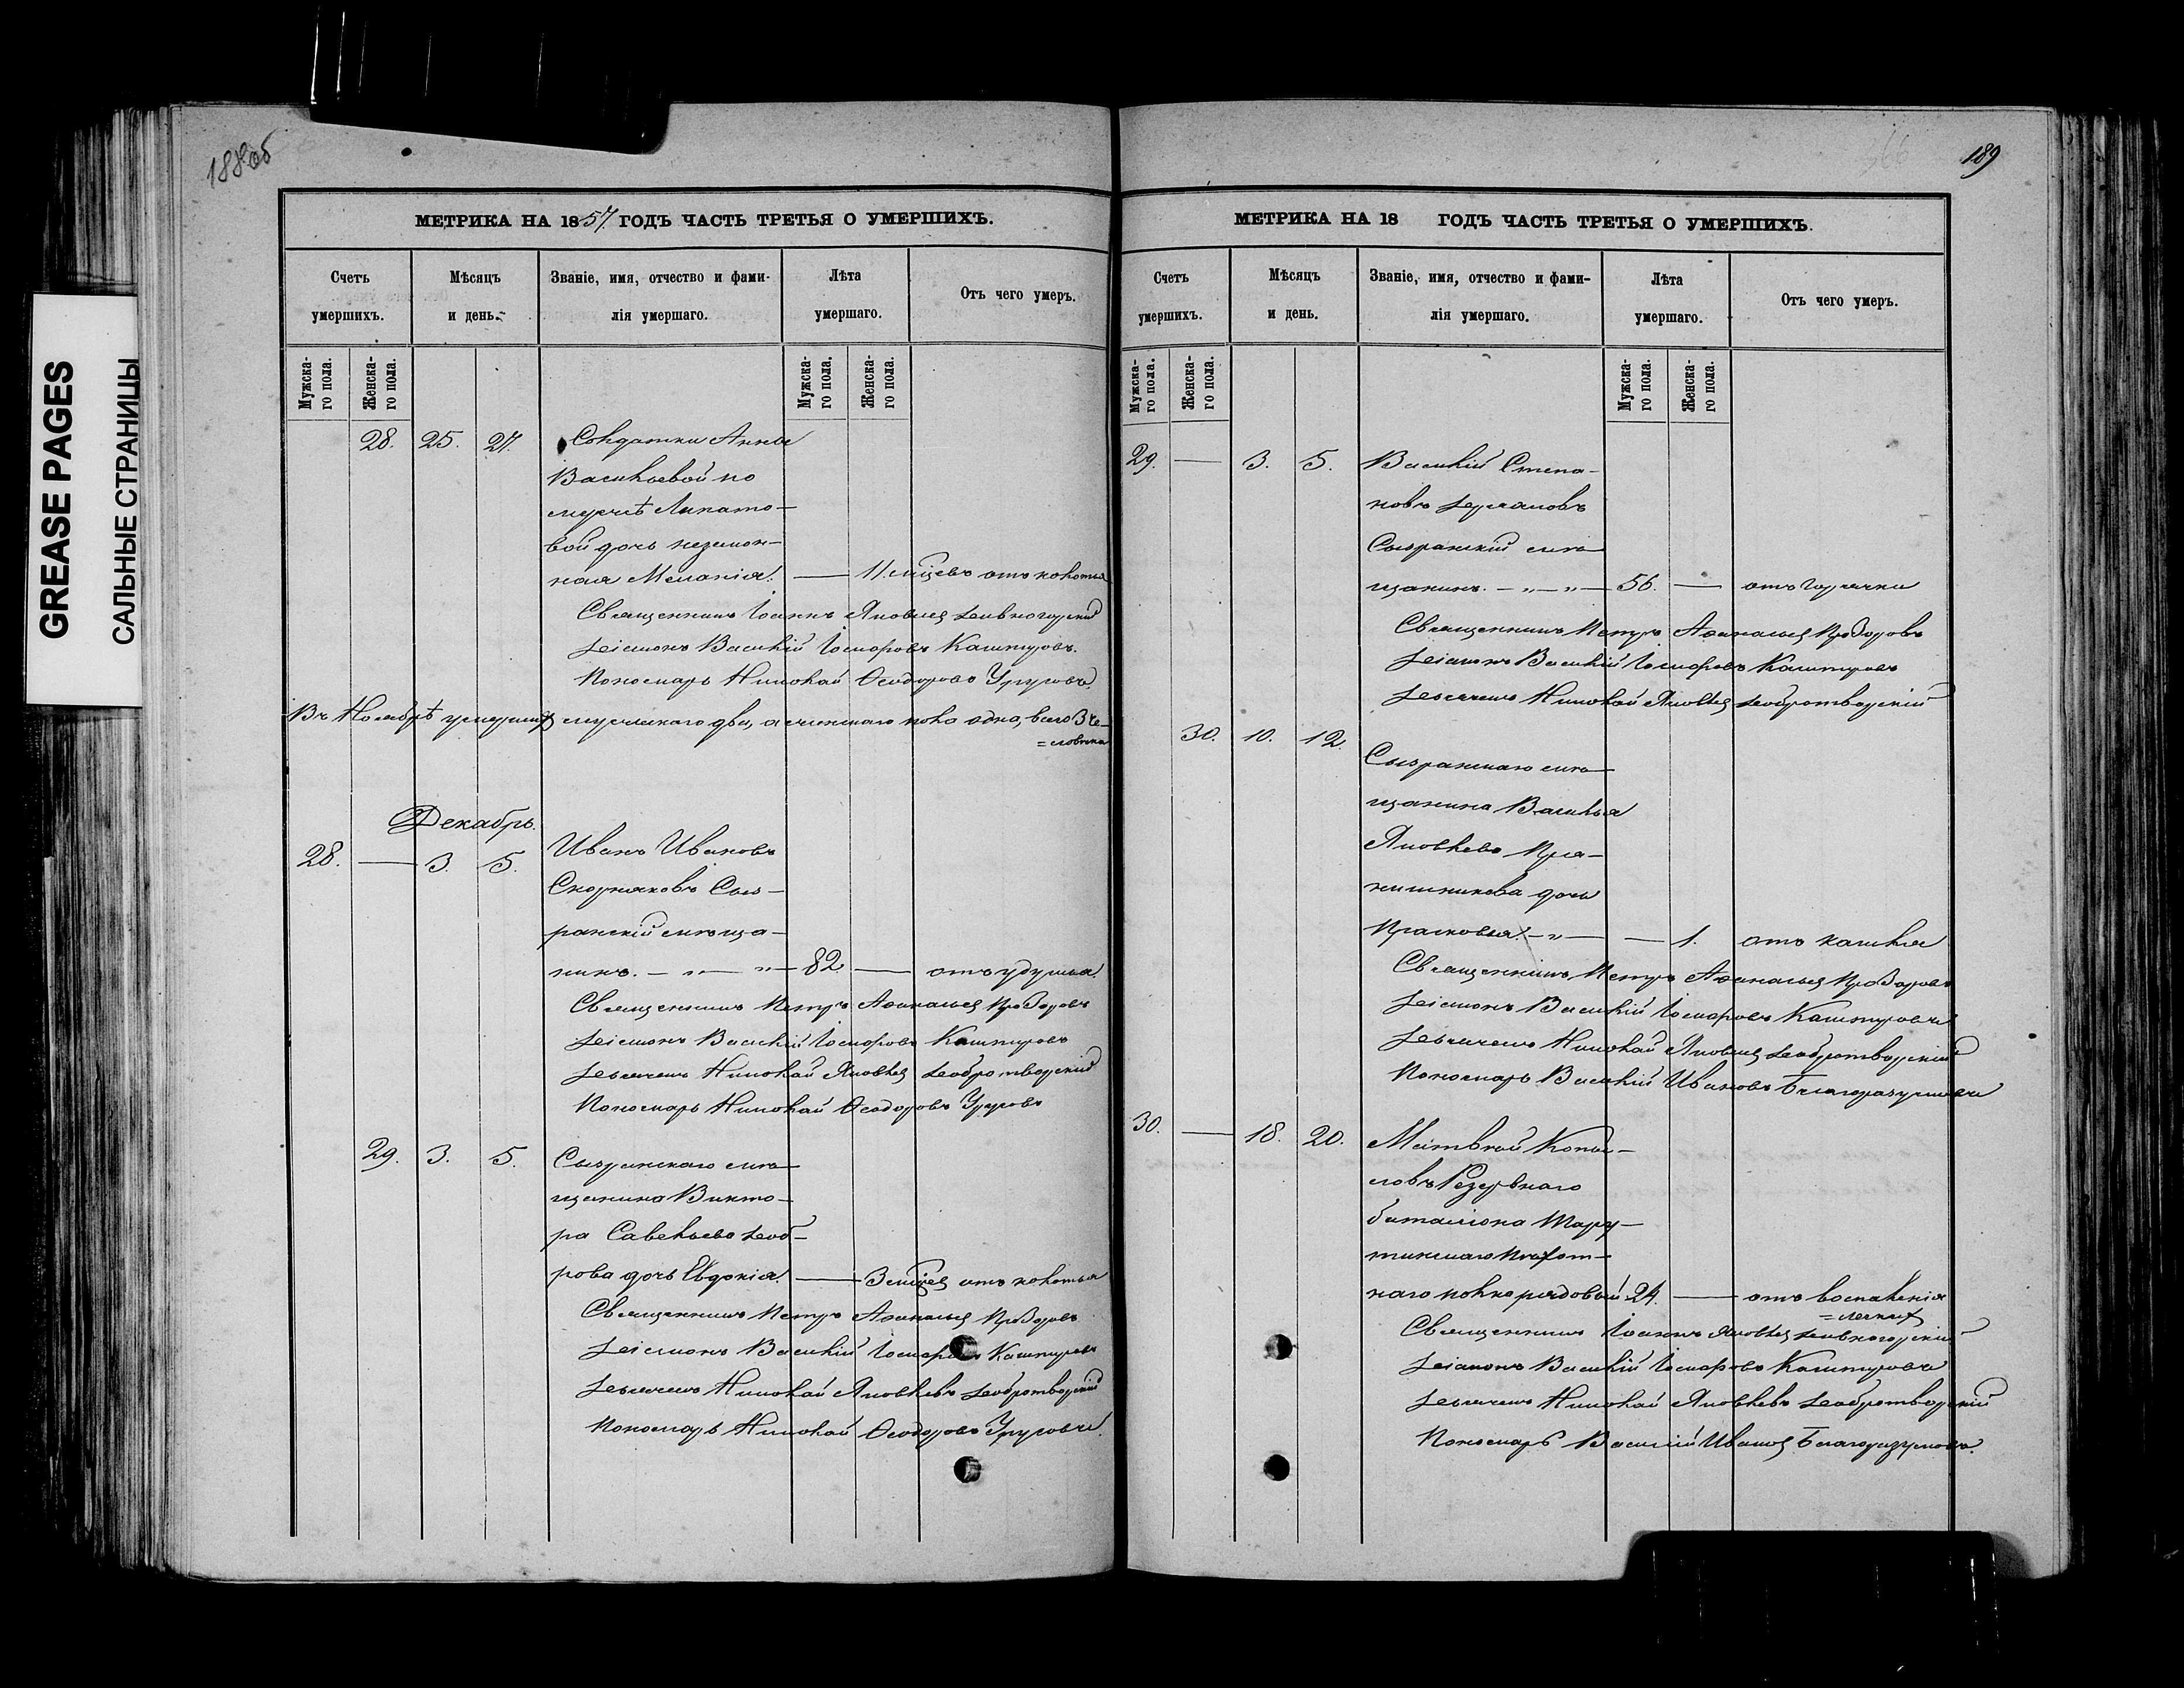 GREASE PAGES
САЛЬНЫЕ СТРАНИЦЫ
188об
МЕТРИКА НА 1857 ГОДЪ ЧАСТЬ ТРЕТЬЯ О УМЕРШИХЪ.
Счетъ умершихъ.
Мѣсяцъ и день.
Званіе, имя, отчество и фами-
лія умершаго.
Лѣта умершаго.
Отъ чего умеръ.
Мужска-
го пола.
Женска-
го пола.
Мужска-
го пола.
Женска-
го пола.
28. 25. 27. Солдатки Анны
Васильевой по
мужѣ Липато-
вой дочь незакон-
ная Меланія. — 11. мцевъ отъ колотья
Священникъ Іоаннъ Яковлев
Діаконъ Василій Каштуровъ.
Пономарь Николай Ѳеодоровъ Урусовъ.
Въ Ноябрѣ умершихъ мужскаго два, а женскаго пола одна, всего 3 че-
=ловека
Декабрь.
28. — 3. 5. Иванъ Ивановъ
Скорняковъ Сыз-
ранскій мѣща-
нинъ. — „ — „ — 82 — отъ удушья.
Священникъ Петръ Аѳанасьев Прозоровъ
Діаконъ Василій Каштуровъ
Дьячекъ Николай Яковлев Добротворскій
Пономарь Николай Ѳеодоровъ Урусовъ
29. 3. 5. Сызранскаго мѣ-
щанина Викто-
ра Савельева Доб-
рова дочь Евдокія. — 3 мцев отъ колотья
Священникъ Петръ Аѳанасьев Прозоровъ
Діаконъ Василій Каштуровъ
Дьячекъ Николай Яковлевъ Добротворскій
Пономарь Николай Ѳеодоровъ Урусовъ.
366
189
МЕТРИКА НА 18 ГОДЪ ЧАСТЬ ТРЕТЬЯ О УМЕРШИХЪ.
Счетъ умершихъ.
Мѣсяцъ и день.
Званіе, имя, отчество и фами-
лія умершаго.
Лѣта умершаго.
Отъ чего умеръ.
Мужска-
го пола.
Женска-
го пола.
Мужска-
го пола.
Женска-
го пола.
29. — 3. 5. Василій Степа-
новъ
Сызранскій мѣ-
щанинъ. — „ — „ — 56. — отъ горячки
Священникъ Петръ Аѳанасьев Прозоровъ
Діаконъ Василій Каштуровъ
Дьячекъ Николай Яковлев Добротворскій
30. 10. 12. Сызранскаго мѣ-
щанина Василья
Яковлева Пря-
нишникова дочь
Прасковья. — „ — — 1. отъ кашля
Священникъ Петръ Аѳанасьев Прозоровъ
Діаконъ Василій Каштуровъ
Дьячекъ Николай Яковлев Добротворскій
Пономарь Василій Ивановъ Благоразумовъ
30. — 18. 20. Матвѣй Копы-
ловъ Резервнаго
баталіона Тару-
тинскаго Пѣхот-
наго полка рядовый 24. — отъ воспаленія
=легких
Священникъ Іоаннъ Яковлев
Діаконъ Василій Каштуровъ
Дьячекъ Николай Яковлевъ Добротворскій
Пономарь Василій Иванов Благоразумовъ.